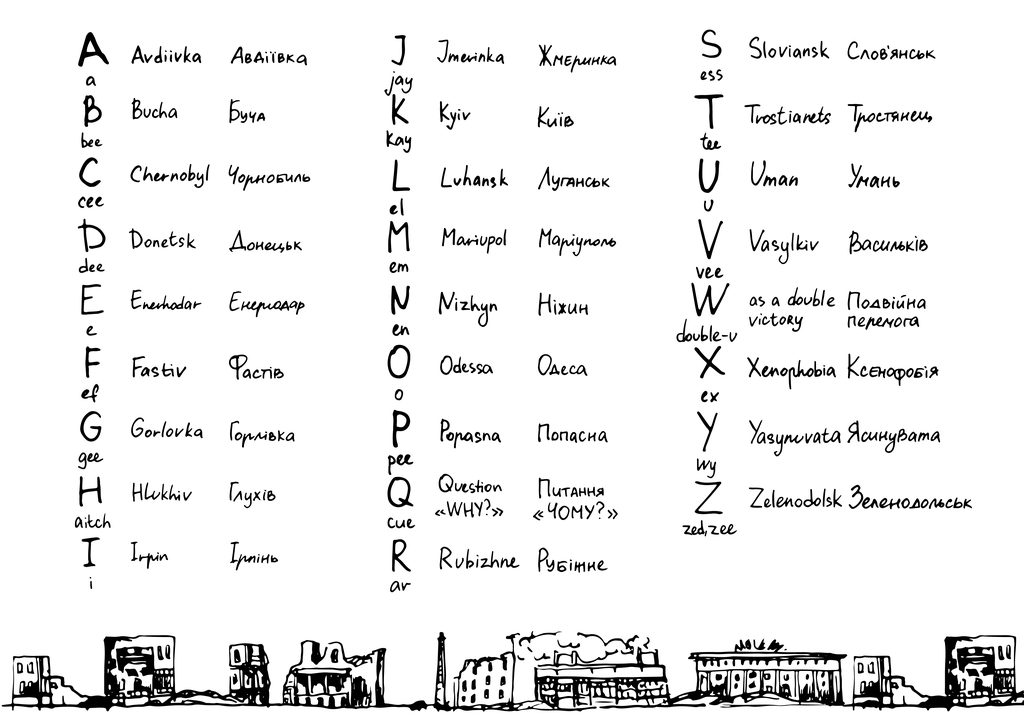 A Avdiivka Авдіївка
a
B Bucha Буча
bee
C Chernobyl Чорнобиль
cee
D Donetsk Донецьк
dee
E Enerhodar Енергодар
e
F Fastiv Фастів
ef
G Gorlovka Горлівка
gee
H Hlukhiv Глухів
aitch
I Irpin Ірпінь
i
J Jmerinka Жмеринка
jay
K Kyiv Київ
kay
L Luhansk Луганськ
el
M Mariupol Маріуполь
em
N Nizhyn Ніжин
en
O Odessa Одеса
o
P Popasna Попасна
pee
Q Question Питання
«WHY?» «ЧОМУ?»
cue
R Rubizhne Рубіжне
ar
S Sloviansk Слов'янськ
ess
T Trostianets Тростянець
tee
U Uman Умань
u
V Vasylkiv Васильків
vee
W as a double Подвійна
victory перемога
double-u
X Xenophobia Ксенофобія
ex
Y Yasynuvata Ясинувата
wy
Z Zelenodolsk Зеленодольськ
zed, zee